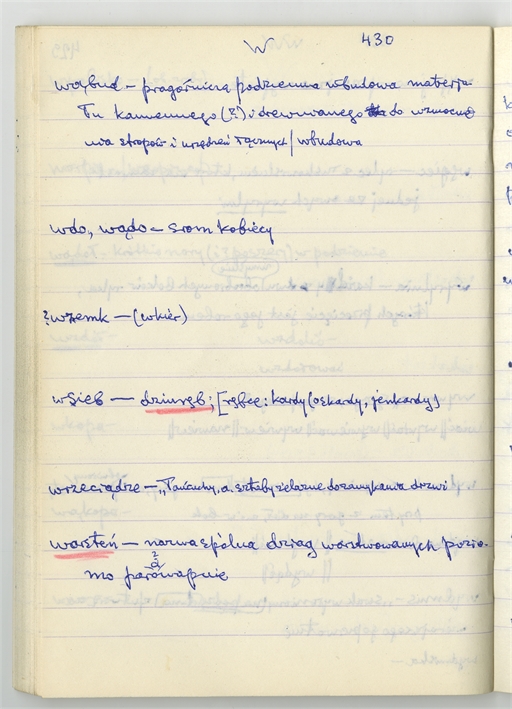 W 430
wąbud – pragórnicza podziemna wbudowa materja-
łu kamiennego (?) i drewnianego do wzmocnie
nia stropów i urządzeń łącznych / wbudowa
wdo, wądo = srom kobiecy
? wzemk – (wkier)
wsieb – dziurąb; [rąbcę: kardy (oskardy, jenkardy)
wrzeciądze – „Łańcuchy, a. sztaby żelazne do zamykania drzwi
warsteń – nazwa spólna dziąg warstwowanych pozio-
mo